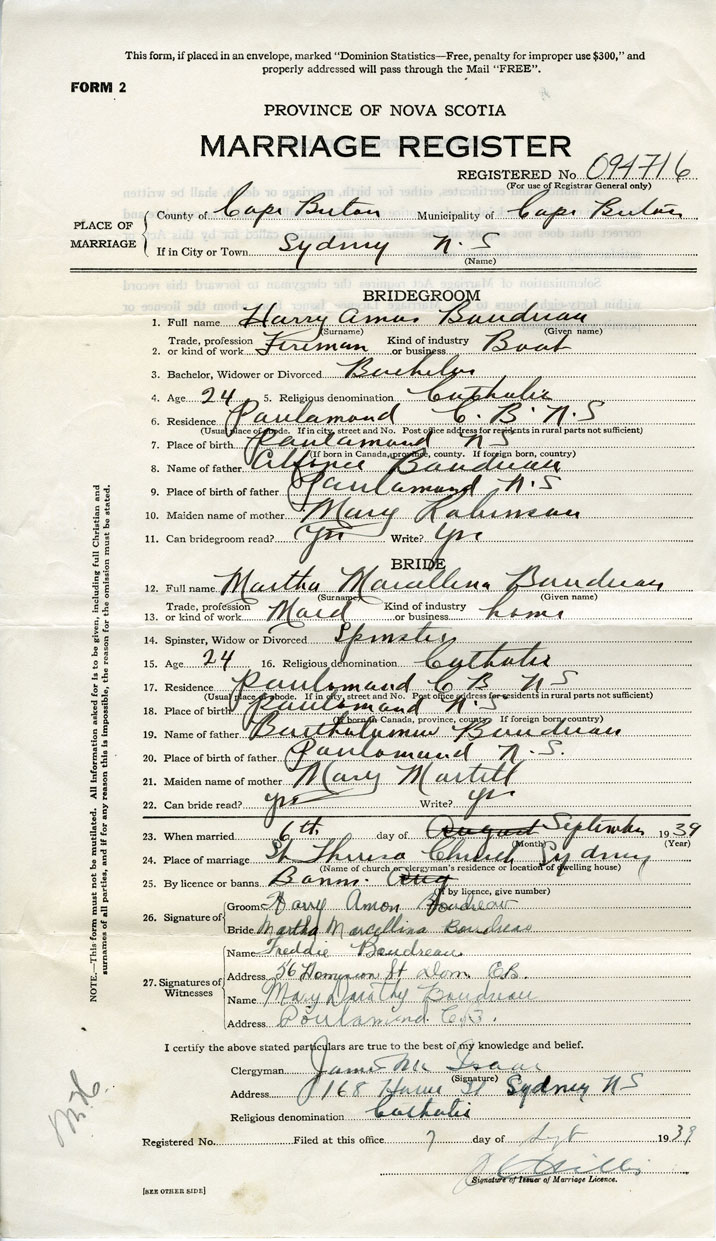 This form, if placed in an envelope, marked "Dominion Statistics—Free, penalty for improper use $300," and
properly addressed will pass through the Mail "FREE".
FORM 2
PROVINCE OF NOVA SCOTIA
MARRIAGE REGISTER
REGISTERED No 094716
(For use of Registrar General only)
PLACE OF MARRIAGE
County of Cape Breton Municipality of Cape Breton
If in City or Town Sydney N.S
(Name)
BRIDEGROOM
1. Full name Harry Amos Boudreau
(Surname) (Given name)
2. Trade, profession or kind of work Fireman Kind of industry or business Boat
3. Bachelor, Widower or Divorced Bachelor
4. Age 24 5. Religious denomination Catholic
6. Residence Poulamond C. B. N.S
(Usual place of abode. If in city, street and No. Post office address for residents in rural parts not sufficient)
7. Place of birth Poulamond N S
(If born in Canada, province, county. If foreign born, country)
8. Name of father Boudreau
9. Place of birth of father Poulamond N.S
10. Maiden name of mother Mary Robinson
11. Can bridegroom read? Yes Write? Yes
BRIDE
12. Full name Martha Marcellina Boudreau
(Surname) (Given name)
13. Trade, profession or kind of work Maid Kind of industry or business home
14. Spinster, Widow or Divorced Spinster
15. Age 24 16. Religious denomination Catholic
17. Residence Poulamond C B N S
(Usual place of abode. If in city, street and No. Post office address for residents in rural parts not sufficient)
18. Place of birth Poulamond N.S
(If born in Canada, province, county. If foreign born, country)
19. Name of father Bartholomew Boudreau
20. Place of birth of father Poulamond N.S.
21. Maiden name of mother Mary Martell
22. Can bride read? Yes Write? Yes
23. When married 6th day of August September 1939
(Month) (Year)
24. Place of marriage St Theresa Church Sydney
(Name of church or clergyman's residence or location of dwelling house)
25. By licence or banns Banns. Aug
(If by licence, give number)
26. Signature of
Groom Harry Amon Boudreau
Bride Martha Marcellina Boudreau
27. Signatures of Witnesses
Name Freddie Boudreau
Address 56 Dominion St Dom C.B.
Name Mary Dorothy Boudreau
Address Poulamond C.B.
I certify the above stated particulars are true to the best of my knowledge and belief.
Clergyman James Mc Isaac
(Signature)
Address 168 St Sydney N S
Religious denomination Catholic
Registered No. Filed at this office 7 day of Sept 1939
Signature of Issuer of Marriage Licence.
[SEE OTHER SIDE]
NOTE.—This form must not be mutilated. All Information asked for is to be given, including full Christian and
surnames of all parties, and if for any reason this is impossible, the reason for the omission must be stated.